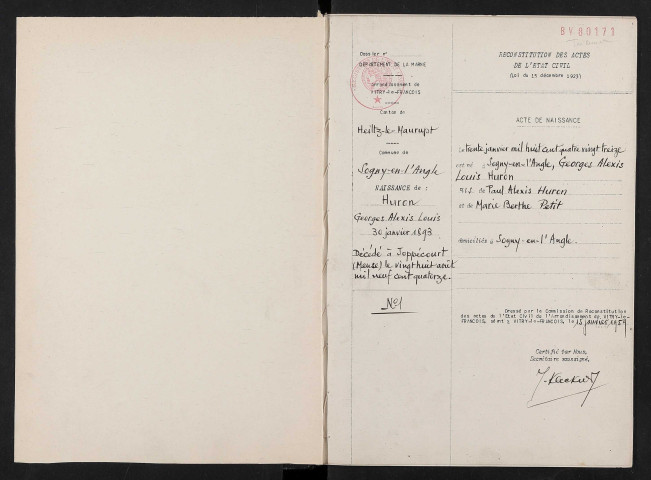 BV80171
Dossier n°
DÉPARTEMENT DE LA MARNE
Arrondissement de
VITRY-le-FRANCOIS
Canton de
Heiltz-le-Maurupt
Commune de
Sogny-en-l'Angle
NAISSANCE de :
Huron
Georges Alexis Louis
30 janvier 1893
Décédé à Joppécourt
(Meuse) le vingt huit août
mil neuf cent quatorze.
N°1
RECONSTITUTION DES ACTES
DE L'ETAT CIVIL
(Loi du 15 décembre 1923)
ACTE DE NAISSANCE
Le trente janvier mil huit cent quatre vingt treize
est né à Sogny-en-l'Angle, Georges Alexis
Louis Huron
fils de Paul Alexis Huron
et de Marie Berthe Petit
domiciliés à Sogny-en-l'Angle.
Dressé par la Commission de Reconstitution
des actes de l'Etat Civil de l'Arrondissement de VITRY-le-
FRANCOIS, séant à VITRY-le-FRANCOIS, le 15 janvier 1959
Certifié par Nous,
Secrétaire soussigné,